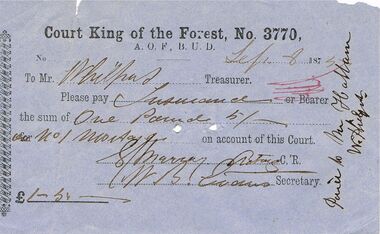 Court King of the Forest, No. 3770,
A. O. F., B. U. D.
No Sept 8 187
To Mr. Philpot Treasurer.
Please pay Insurance or Bearer
the sum of One Pound 5/-
No 1 on account of this Court.
Murray C. R.
W B Evans Secretary.
£1-5-
to Mrs Hallam